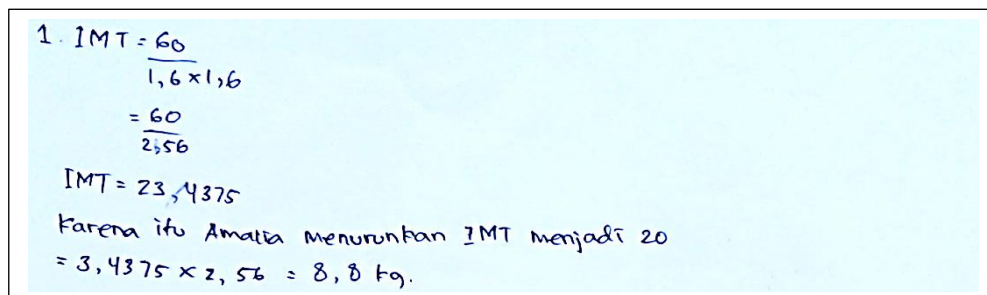 1. IMT = 60
1,6 × 1,6
= 60
2,56
IMT = 23,4375
Karena itu Amalia menurunkan IMT menjadi 20
= 3,4375 × 2,56 = 8,8 kg.